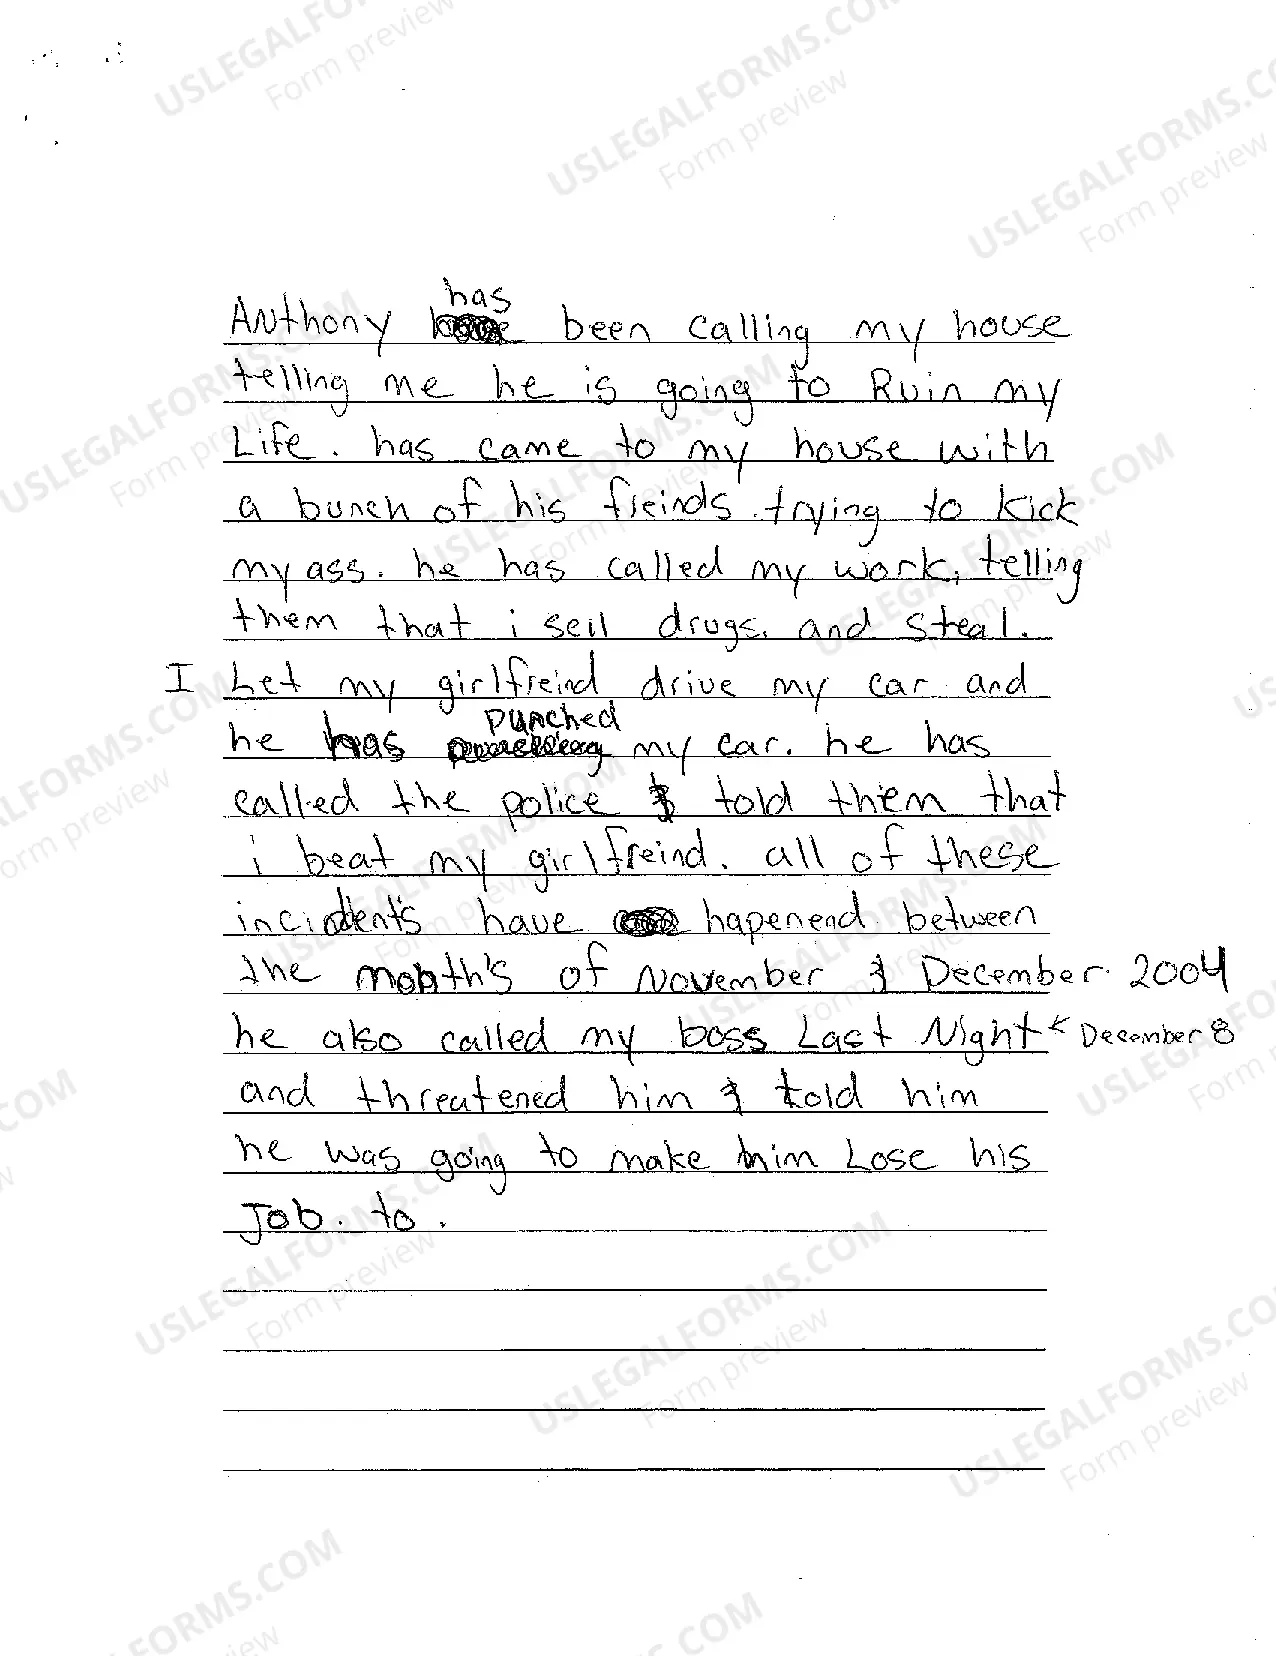 Anthony has been calling my house
telling me he is going to Ruin my
Life. has came to my house with
a bunch of his freinds trying to kick
my ass. he has called my work, telling
them that i sell drugs, and steal.
I Let my girlfreind drive my car and
he has punched my car. he has
called the police & told them that
i beat my girlfreind. all of these
incident's have hapenend between
the month's of November & December 2004
he also called my boss Last Night < December 8
and threatened him & told him
he was going to make him Lose his
Job. to.
USLEGALFORMS.COM
Form preview